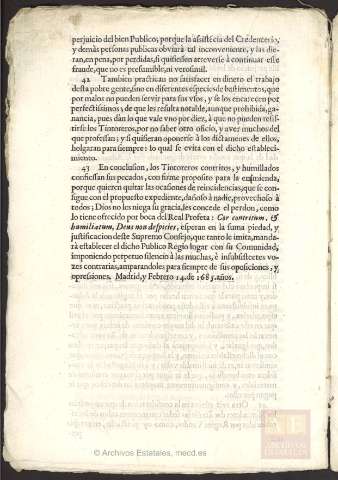 perjuicio del bien Publico, porque la asistẽcia del Credenterio,
y demàs personas publicas obviarà tal inconveniente, y las die-
ran, en pena, por perdidas, si quisiessen atreverse à continuar esse
fraude, que no es presumible, ni verosimil.
42 Tambien practican no satisfacer en dinero el trabajo
desta pobre gente, sino en diferentes especies de bastimentos, que
por malos no pueden servir para sus vsos, y se los encarecen por
perfectissimos; de que les resulta notable, aunque prohibida, ga-
nancia, pues dàn lo que vale vno por diez, à que no pueden resis-
tirse los Tintoreros, por no saber otro oficio, y aver muchos del
que professan; y si quisieran oponerse à los dictamenes de ellos,
holgaran para siempre: lo qual se evita con el dicho estableci-
miento.
43 En conclusion, los Tintoreros contritos, y humillados
confiessan sus pecados, con firme proposito para la enmienda,
porque quieren quitar las ocasiones de reincidencias, que se con-
sigue con el propuesto expediente, dañoso à nadie, provechoso à
todos; Dios no les niega su gracia, les concede el perdon, como
lo tiene ofrecido por boca del Real Profeta: Cor contritum, &
humiliatum, Deus non despicies, esperan en la suma piedad, y
justificacion deste Supremo Consejo, que tanto le imita, manda-
rà establecer el dicho Publico Regio lugar con su Comunidad,
imponiendo perpetuo silencio à las muchas, è insubsistentes vo-
zes contrarias, amparandoles para siempre de sus oposiciones, y
opresiones. Madrid, y Febrero 14. de 1685. años.
© Archivos Estatales, mecd.es
ARCHIVOS
ESTATALES